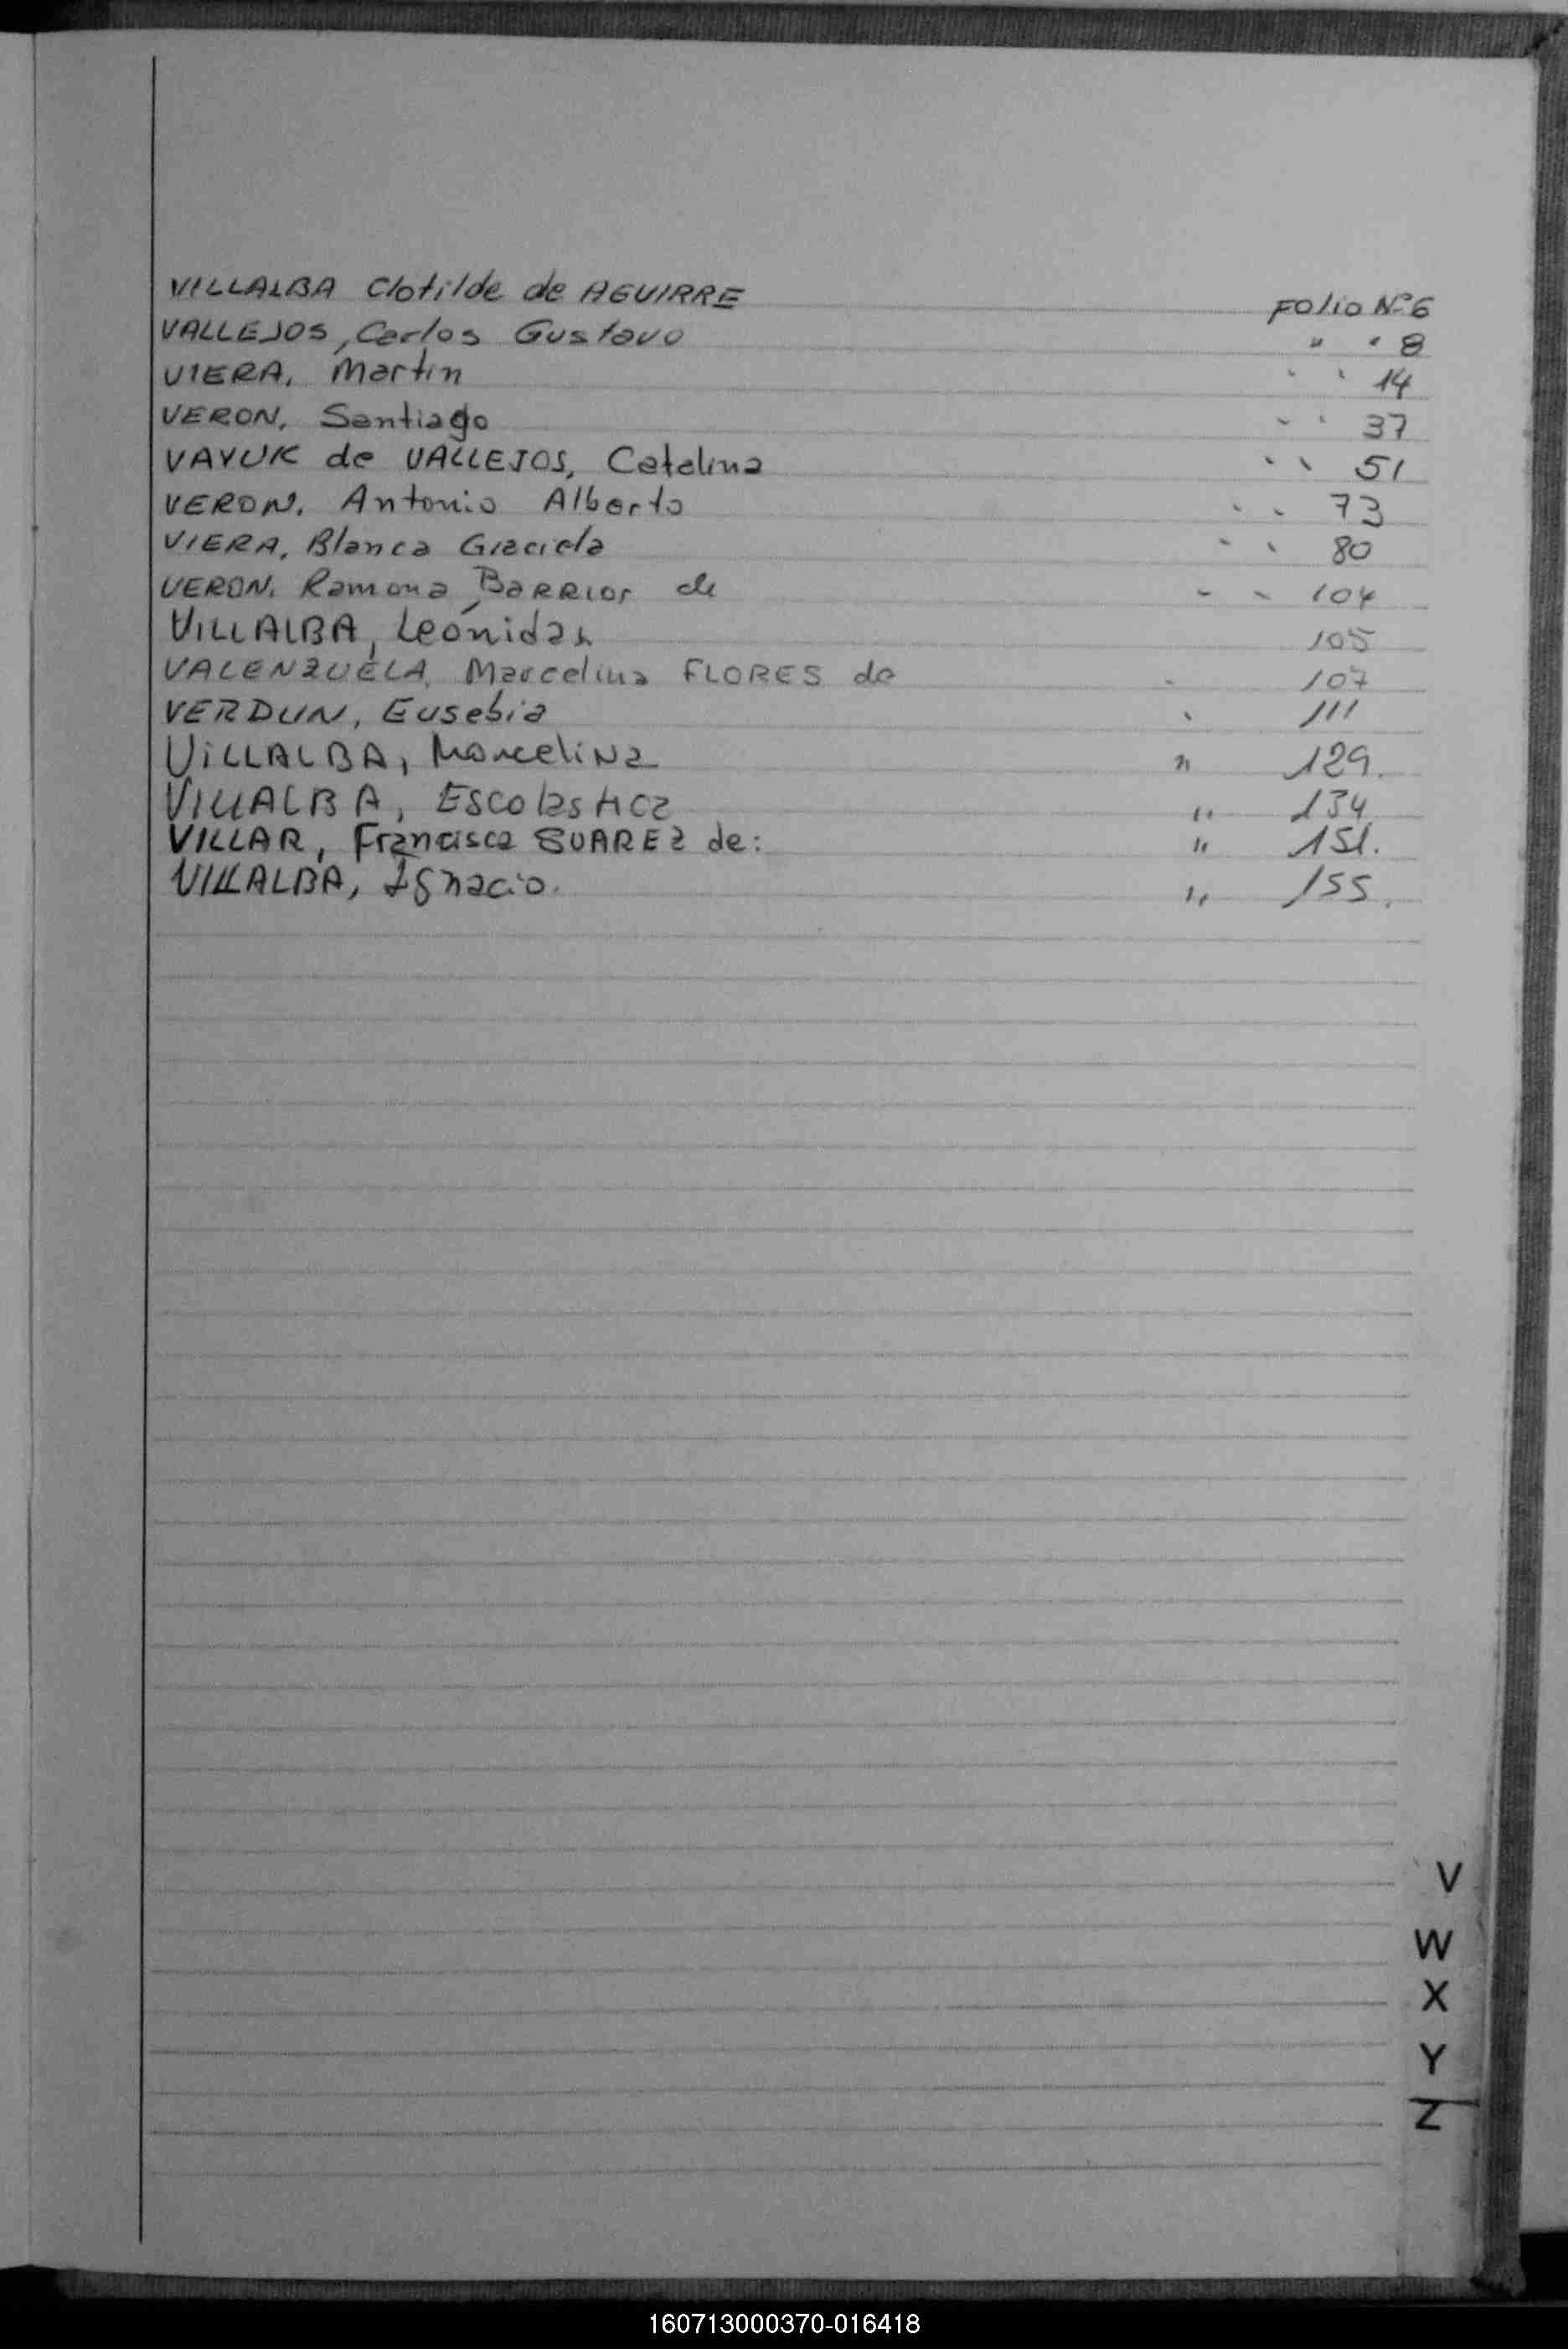 VILLALBA Clotilde de AGUIRRE Folio Nº 6
VALLEJOS, Carlos Gustavo " " 8
VIERA, Martin " " 14
VERON, Santiago " " 37
VAYUK de VALLEJOS, Catalina " " 51
VERON, Antonio Alberto " " 73
VIERA, Blanca Graciela " " 80
VERON, Ramona BARRIOS de " " 104
VILLALBA, Leónidas 105
VALENZUELA, Marcelina FLORES de " 107
VERDUN, Eusebia " 111
VILLALBA, Marcelina " 129.
VILLALBA, Escolastica " 134
VILLAR, Francisca SUAREZ de: " 151.
VILLALBA, Ignacio. " 155.
V
W
X
Y
Z
160713000370-016418